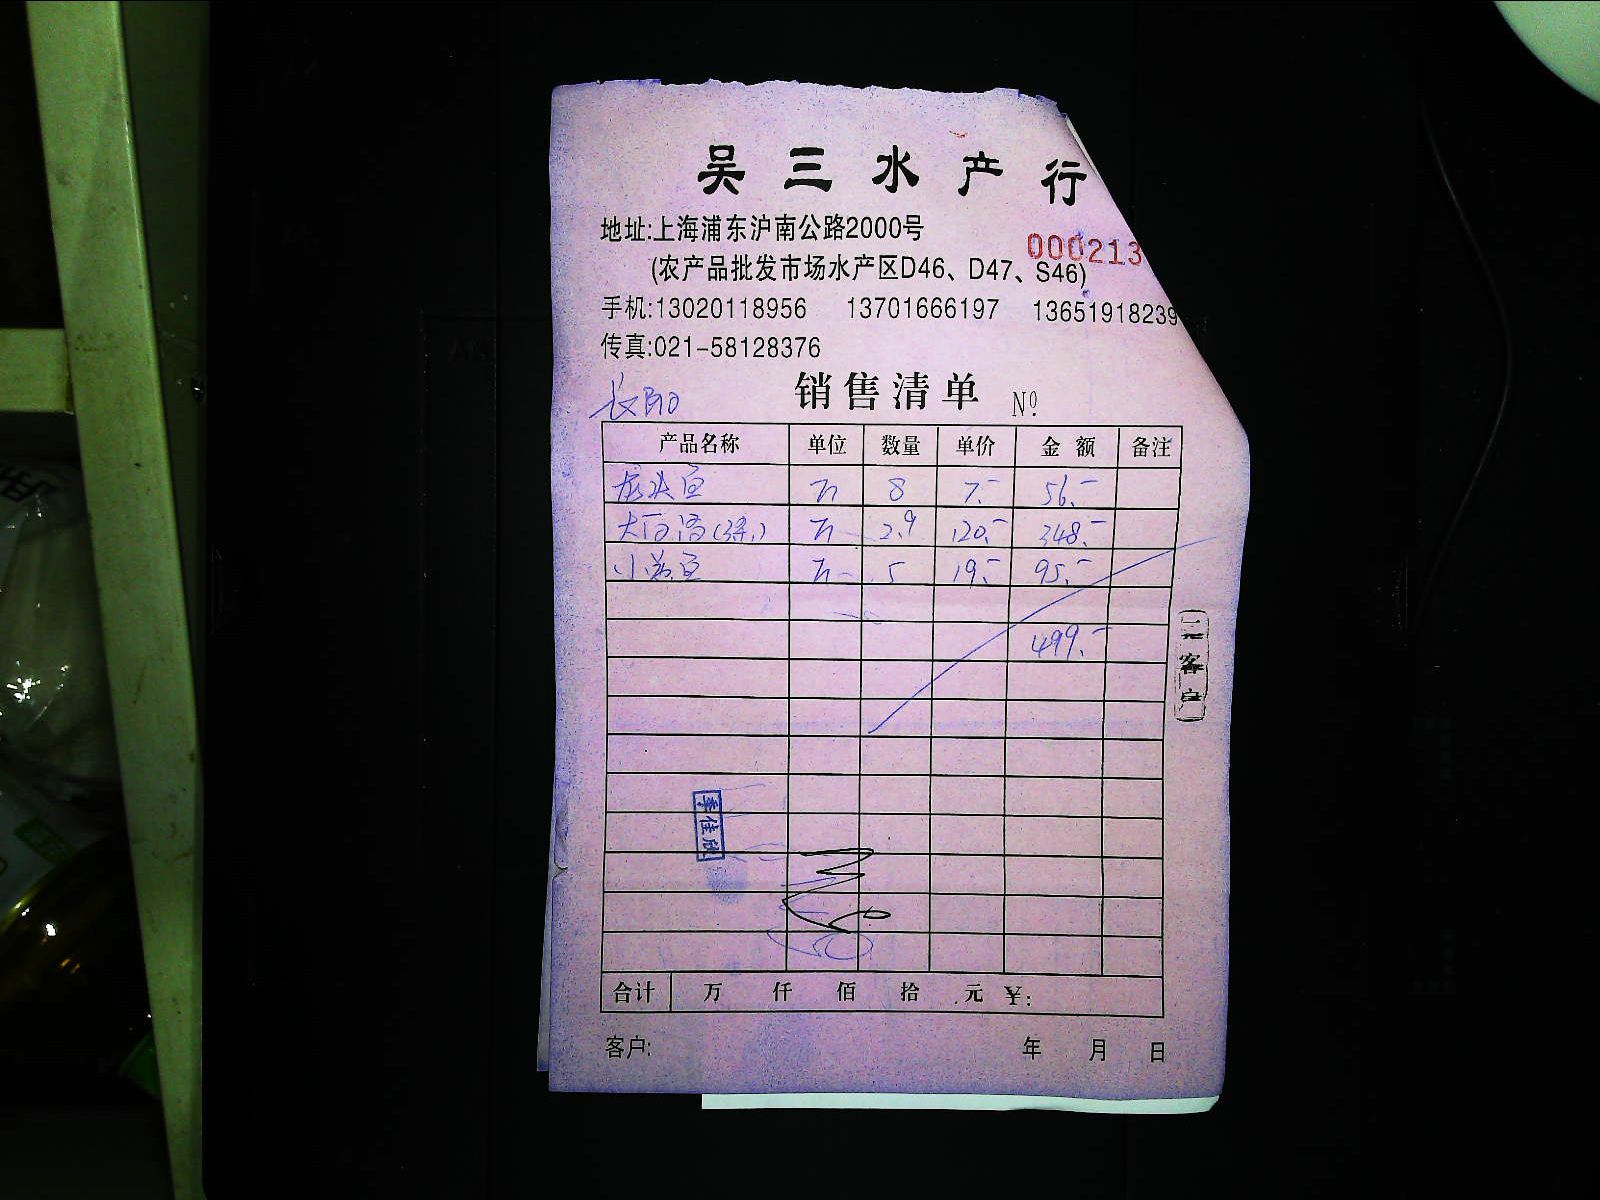 吴三水产行
地址:上海浦东沪南公路2000号
000213
(农产品批发市场水产区D46、D47、S46)
手机:13020118956 13701666197 13651918239
传真:021-58128376
销售清单 Nº
产品名称 单位 数量 单价 金额 备注
8 7.- 56.-
2.9 120.- 348.-
小黄鱼 5 19.- 95.-
499.-
二客户
李佳欣
合计 万 仟 佰 拾 元 ¥:
客户: 年 月 日